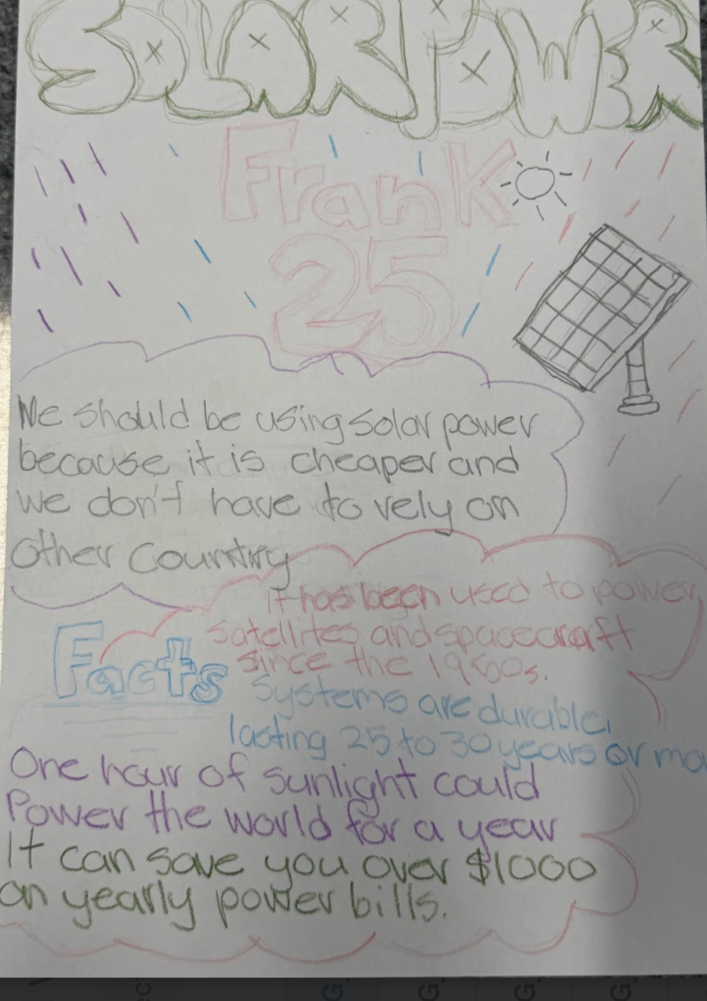 SOLAR POWER
Frank
25
We should be using solar power
because it is cheaper and
we don't have to rely on
other Country
it has been used to power
satellites and spacecraft
Facts
since the 1950s.
Systems are durable,
lasting 25 to 30 years or mo
One hour of sunlight could
Power the world for a year
It can save you over $1000
on yearly power bills.